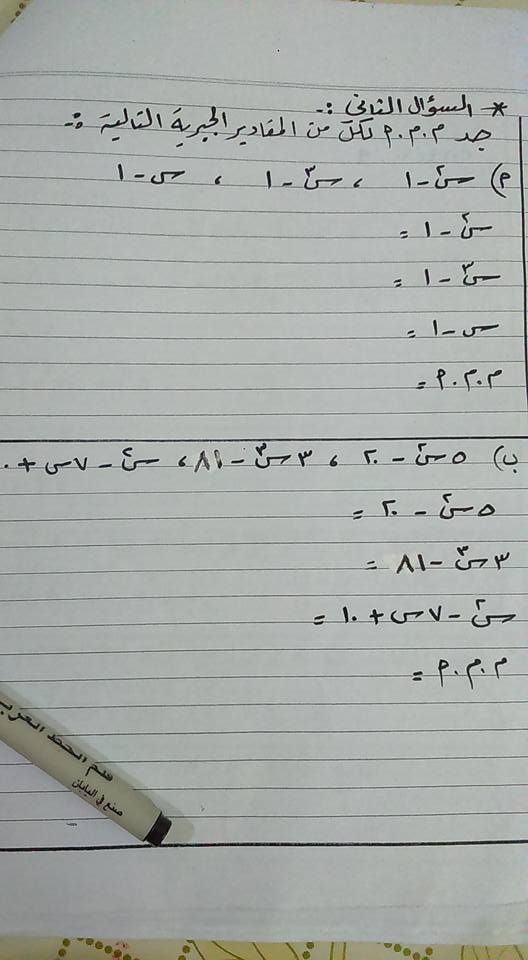 * السؤال الثاني :-
جد م.م.م لكل من المقادير الجبرية التالية :-
م) س² - ١ ، س³ - ١ ، س - ١
س² - ١ =
س³ - ١ =
س - ١ =
م.م.م =
ب) ٥س² - ٢٠ ، ٣س³ - ٨١ ، س² - ٧س + ١٠
٥س² - ٢٠ =
٣س³ - ٨١ =
س² - ٧س + ١٠ =
م.م.م =
قلم الخط العربي
صنع في اليابان